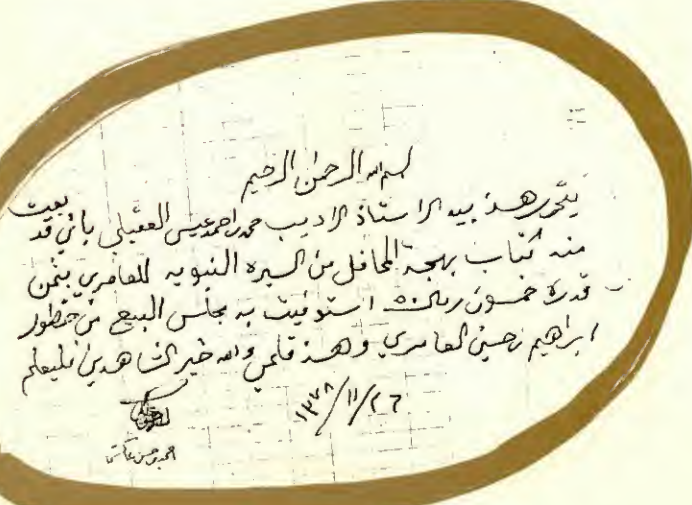 بسم الله الرحمن الرحيم
يتحرر هذا بيد الاستاذ الاديب محمد احمد عيسى العقيلي باني قد بعت
منه كتاب بهجة المحافل من السيره النبويه للعامري بثمن
قدره خمسون ريال استوفيت به بمجلس البيع من
ابراهيم حسين العامري وهذا قلمي والله خير الشاهدين فليعلم
١٣٧٨/١١/٢٦
احمد حسن عاكش